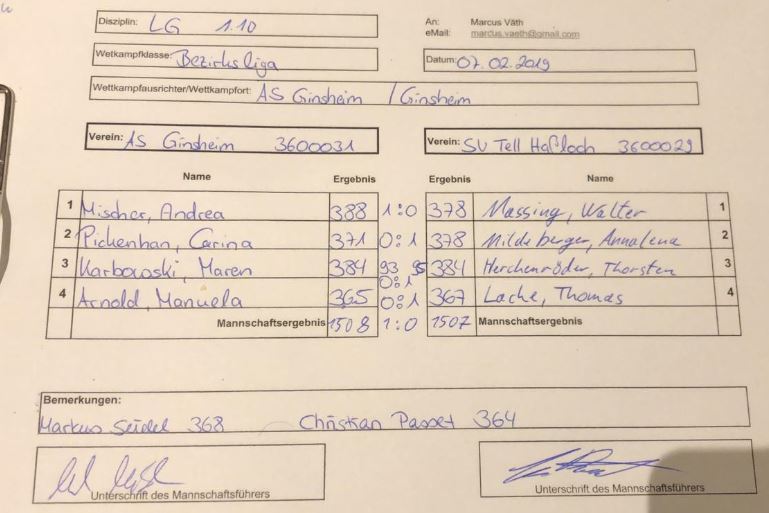 Disziplin: LG 1.10 An: Marcus Väth
eMail: marcus.vaeth@gmail.com
Wettkampfklasse: Bezirksliga Datum: 07.02.2019
Wettkampfausrichter/Wettkampfort: AS Ginsheim / Ginsheim
Verein: AS Ginsheim 3600031 Verein: SV Tell Haßloch 3600029
Name Ergebnis Ergebnis Name
1 Mischer, Andrea 388 1:0 378 Massing, Walter 1
2 Pickenhan, Carina 371 0:1 378 Mildeberger, Annalena 2
3 Karbowski, Maren 384 93 95 384 Herchenröder, Thorsten 3
0:1
4 Arnold, Manuela 365 0:1 367 Lache, Thomas 4
Mannschaftsergebnis 1508 1:0 1507 Mannschaftsergebnis
Bemerkungen:
Markus Seidel 368 Christian Passet 364
Unterschrift des Mannschaftsführers Unterschrift des Mannschaftsführers